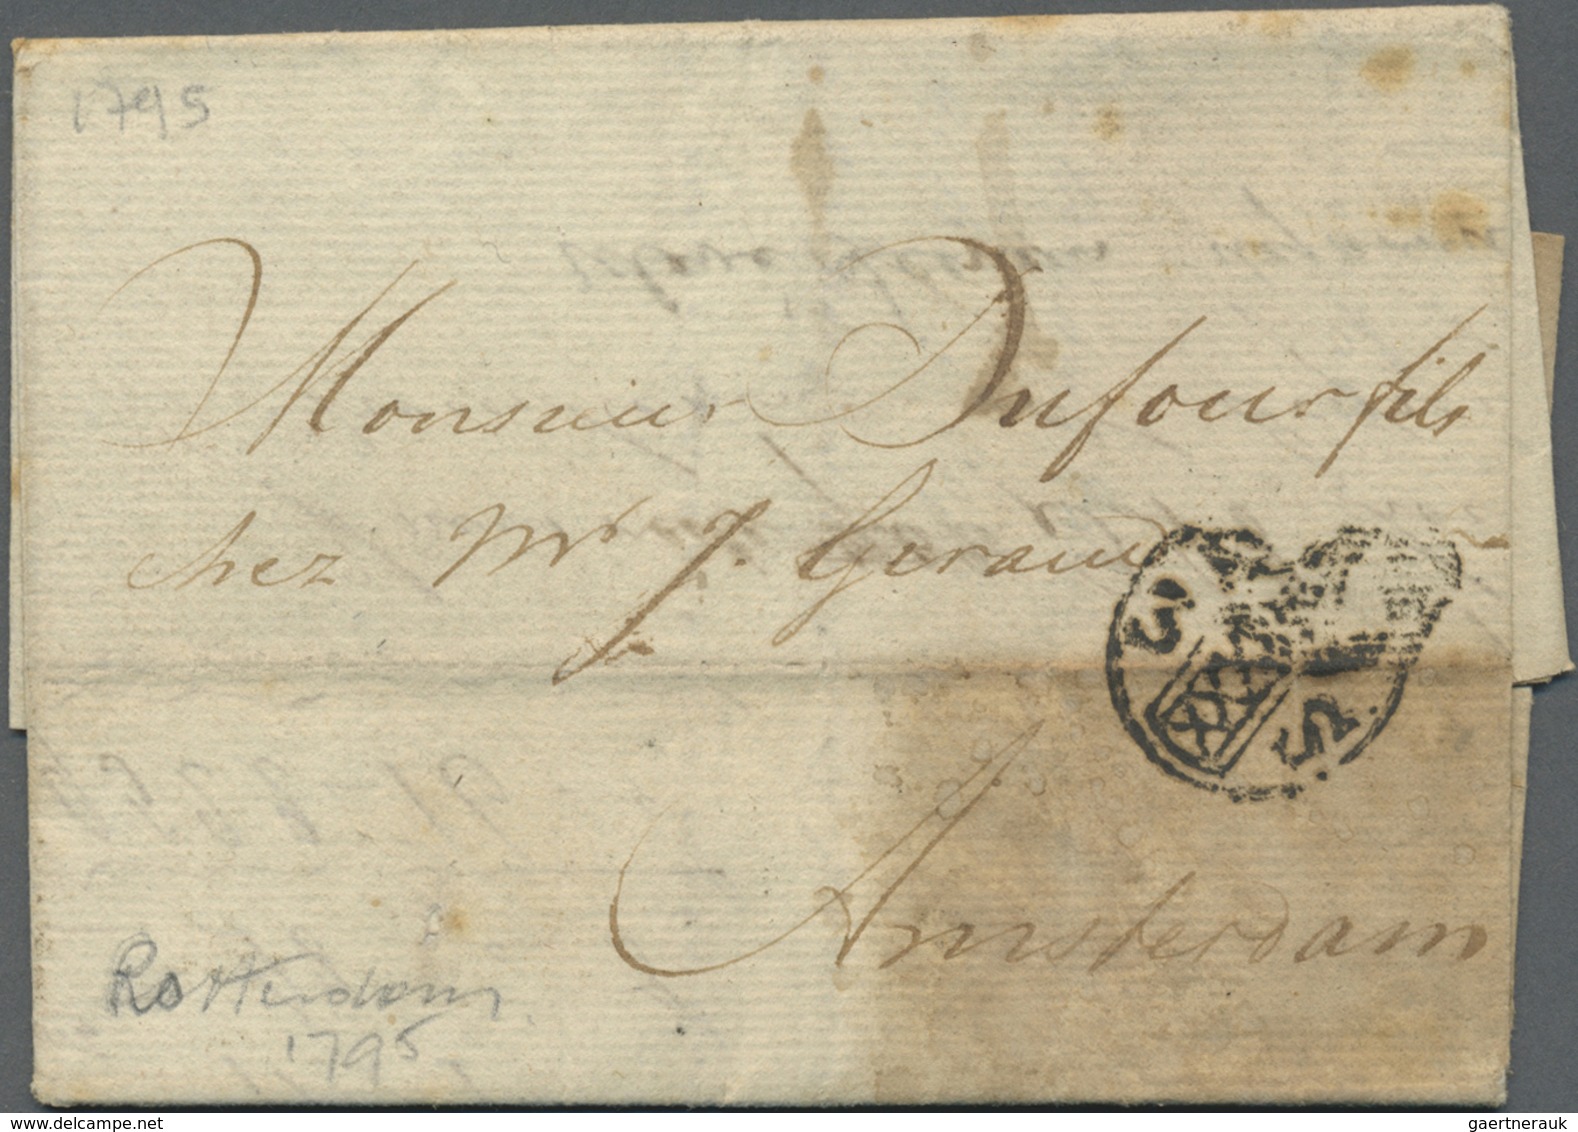 1795
Monsieur Dufour fils
chez Mr J. Geraud
3 S
Amsterdam
Rotterdam
1795
www.delcampe.net
gaertnerauk